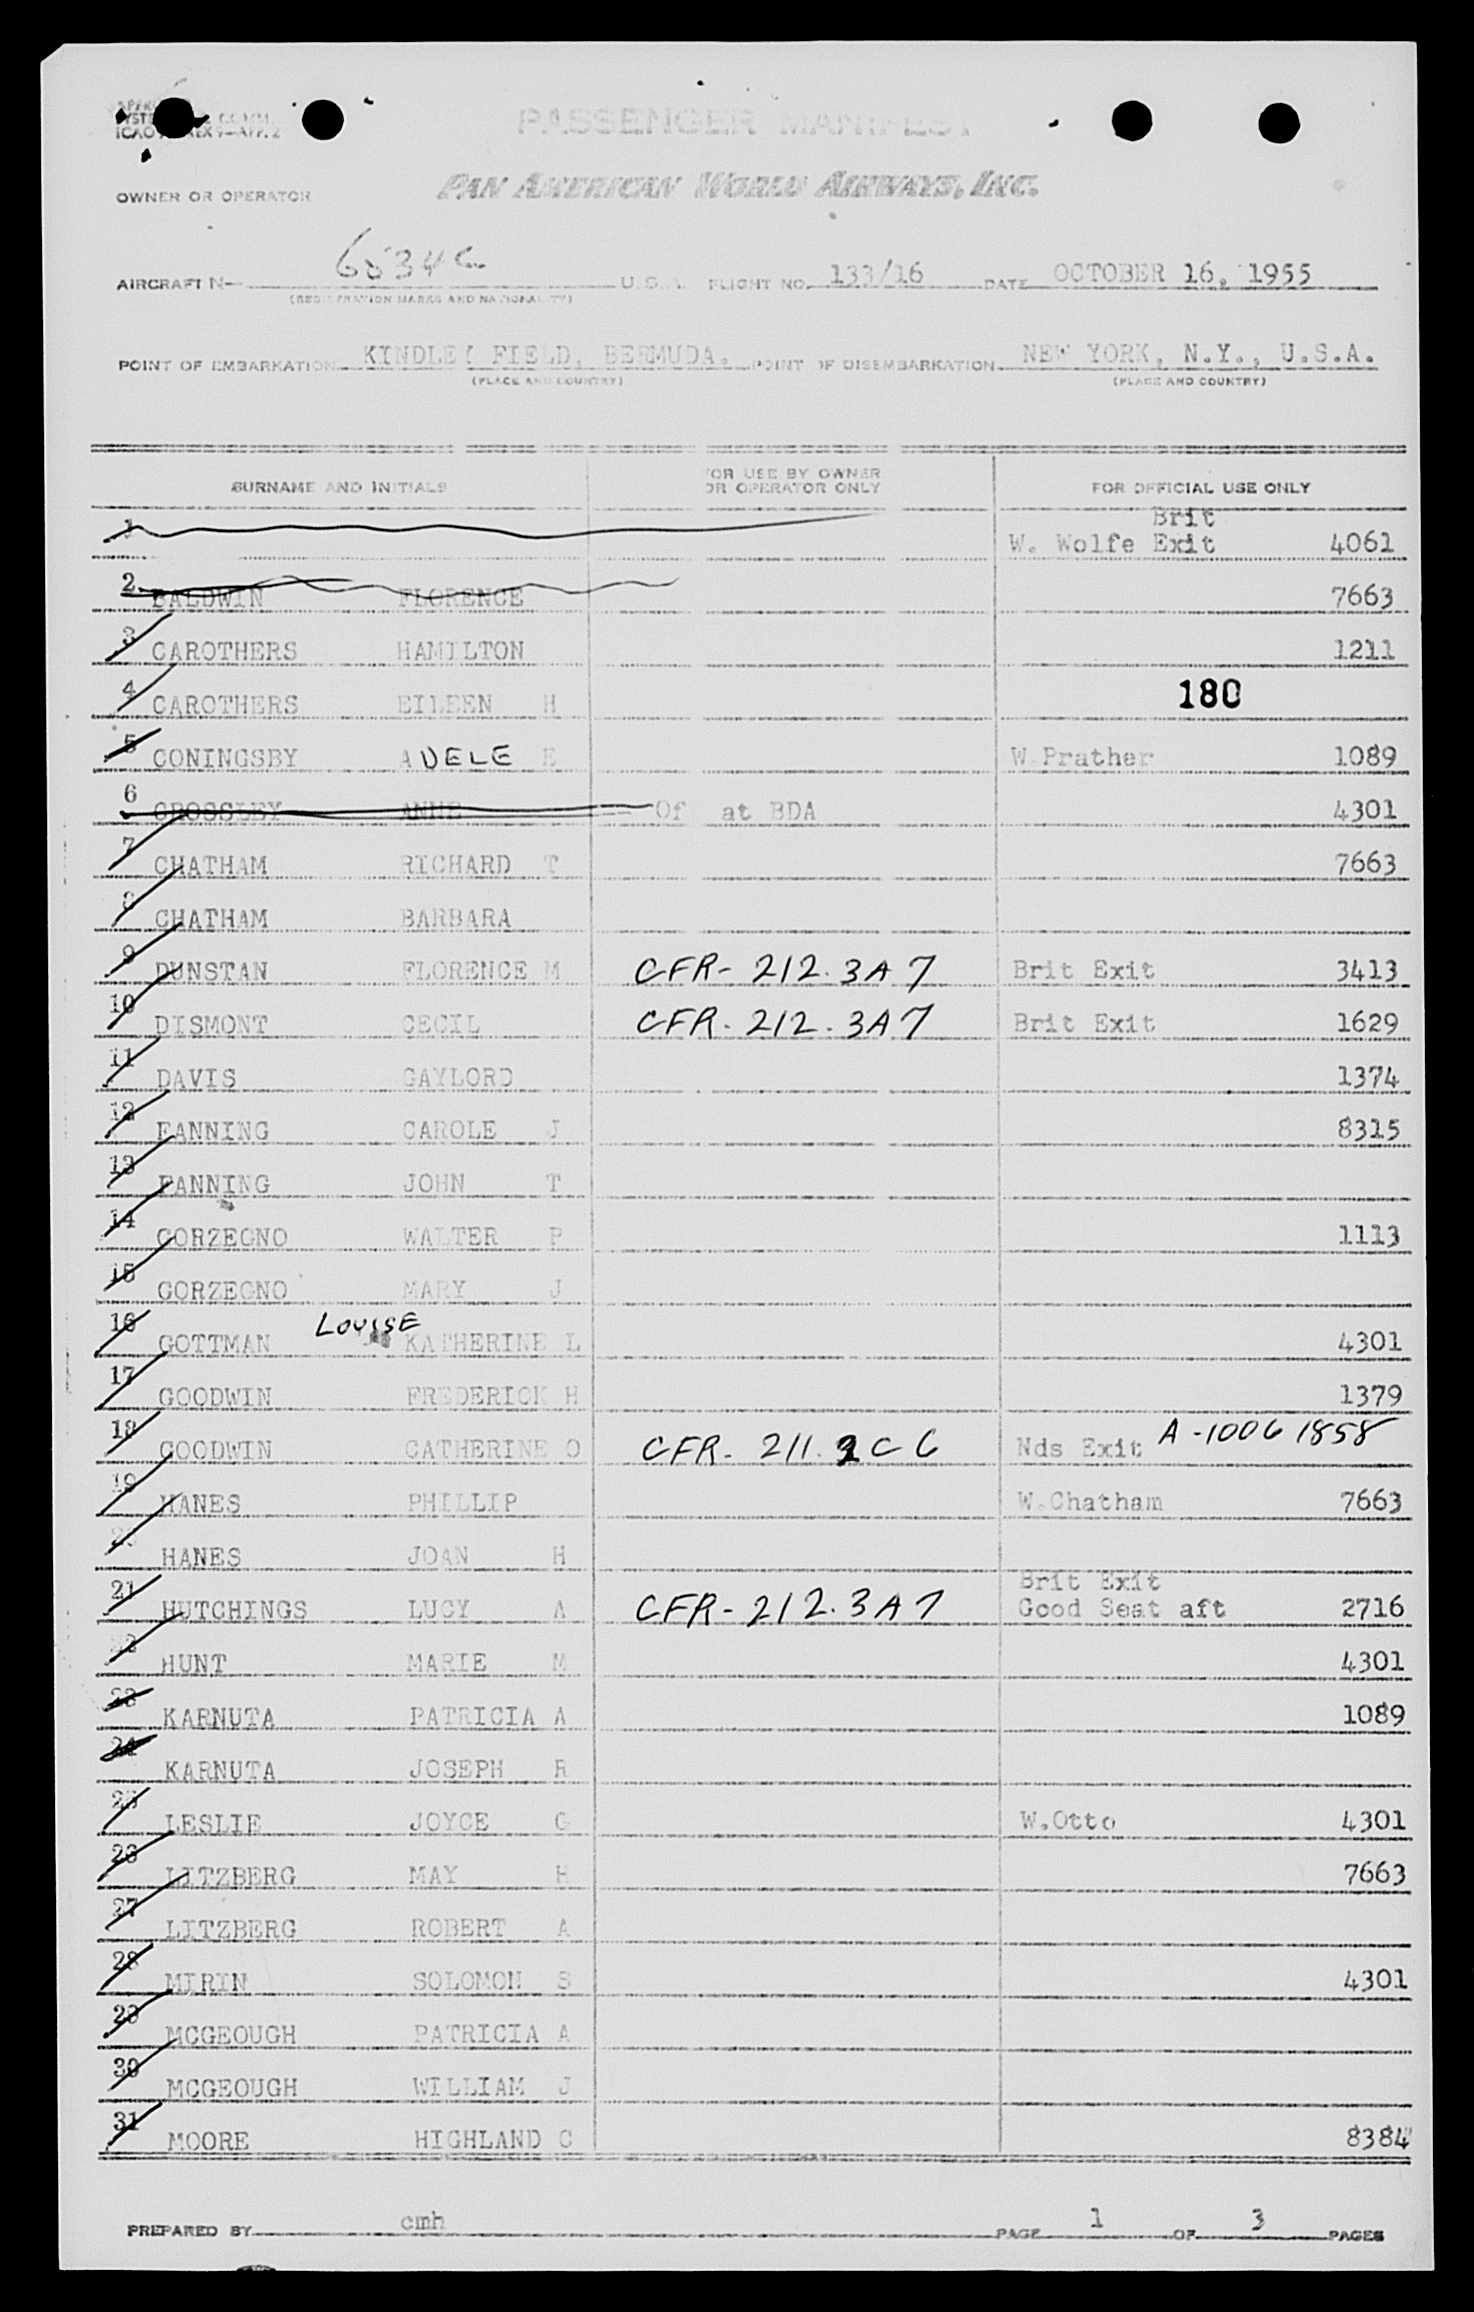 ICAO ANNEX 9—APP. 2
PASSENGER MANIFEST
OWNER OR OPERATOR PAN AMERICAN WORLD AIRWAYS, INC.
AIRCRAFT N— 6534C U.S.A. FLIGHT NO. 133/16 DATE OCTOBER 16, 1955
(REGISTRATION MARKS AND NATIONALITY)
POINT OF EMBARKATION KINDLEY FIELD, BERMUDA. POINT OF DISEMBARKATION NEW YORK, N.Y., U.S.A.
(PLACE AND COUNTRY) (PLACE AND COUNTRY)
SURNAME AND INITIALS FOR USE BY OWNER OR OPERATOR ONLY FOR OFFICIAL USE ONLY
Brit
1 W. Wolfe Exit 4061
2 BALDWIN FLORENCE 7663
3 CAROTHERS HAMILTON 1211
4 CAROTHERS EILEEN H 180
5 CONINGSBY ADELE E W.Prather 1089
6 CROSSLEY ANNE Of at BDA 4301
7 CHATHAM RICHARD T 7663
8 CHATHAM BARBARA
9 DUNSTAN FLORENCE M CFR-212.3A7 Brit Exit 3413
10 DISMONT CECIL CFR-212.3A7 Brit Exit 1629
11 DAVIS GAYLORD 1374
12 FANNING CAROLE J 8315
13 FANNING JOHN T
14 GORZEGNO WALTER P 1113
15 GORZEGNO MARY J
16 GOTTMAN LOUISE KATHERINE L 4301
17 GOODWIN FREDERICK H 1379
18 GOODWIN CATHERINE O CFR-211.2C6 Nds Exit A-10061858
19 HANES PHILLIP W.Chatham 7663
20 HANES JOAN H
Brit Exit
21 HUTCHINGS LUCY A CFR-212.3A7 Good Seat aft 2716
22 HUNT MARIE M 4301
23 KARNUTA PATRICIA A 1089
24 KARNUTA JOSEPH R
25 LESLIE JOYCE G W.Otto 4301
26 LITZBERG MAY H 7663
27 LITZBERG ROBERT A
28 MIRIN SOLOMON S 4301
29 MCGEOUGH PATRICIA A
30 MCGEOUGH WILLIAM J
31 MOORE HIGHLAND C 8384
PREPARED BY cmh PAGE 1 OF 3 PAGES